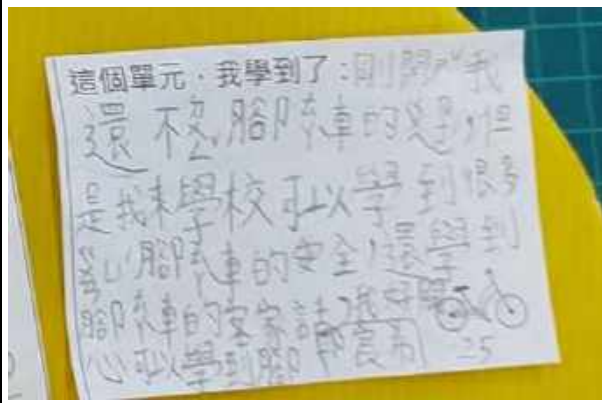 這個單元，我學到了：剛開始我
還不會腳踏車的 但
是我來學校可以學到很多
腳踏車的安全！還學到
腳踏車的客家話，我好開
心可以學到腳
25